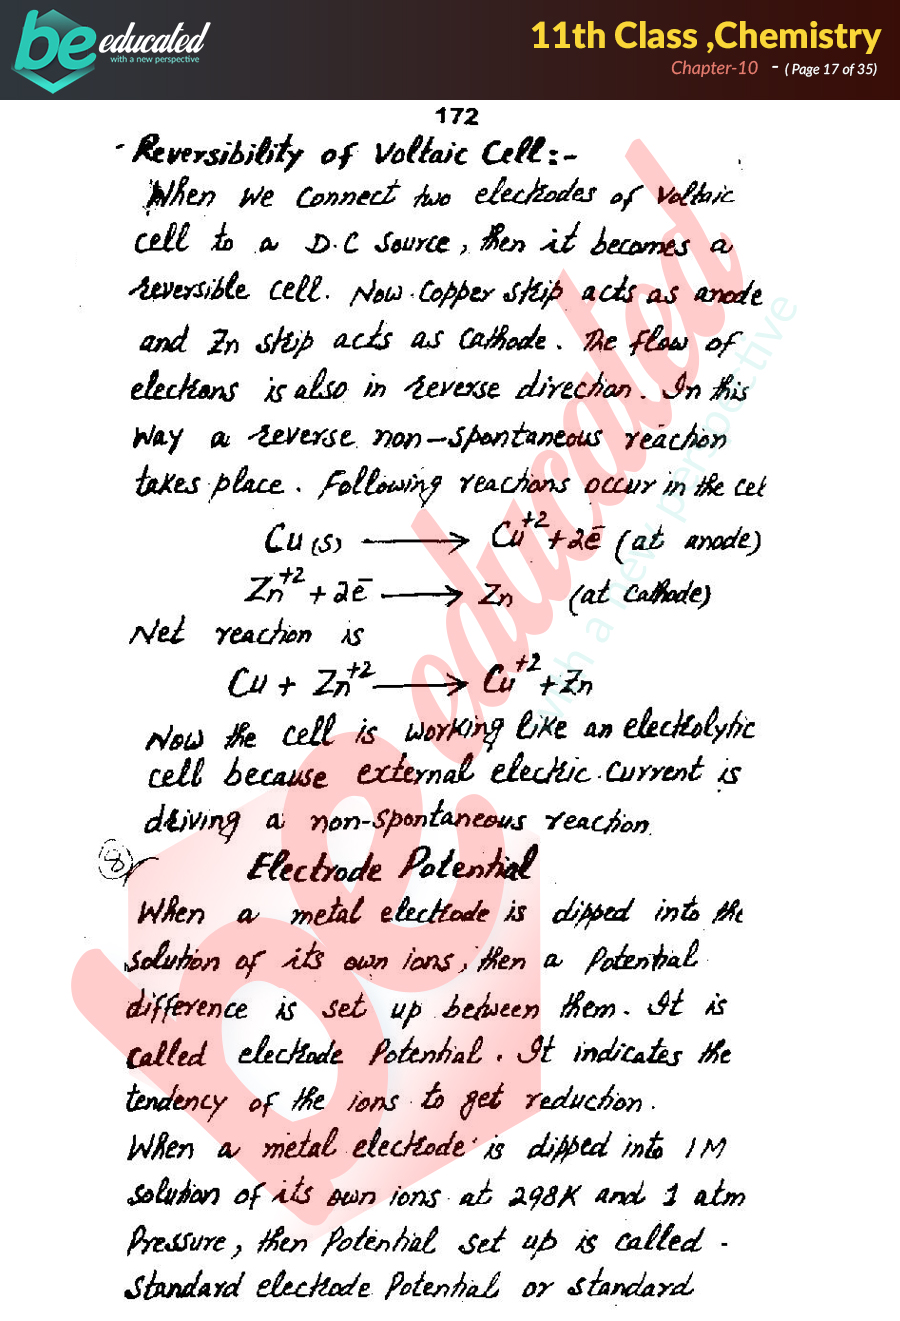 be educated
with a new perspective
11th Class ,Chemistry
Chapter-10 - ( Page 17 of 35)
172
Reversibility of Voltaic Cell:-
When we connect two electrodes of voltaic
cell to a D.C source, then it becomes a
reversible cell. Now copper strip acts as anode
and Zn strip acts as cathode. The flow of
electrons is also in reverse direction. In this
way a reverse non-spontaneous reaction
takes place. Following reactions occur in the cel
Cu(s) ⟶ Cu⁺² + 2ē (at anode)
Zn⁺² + 2ē ⟶ Zn (at cathode)
Net reaction is
Cu + Zn⁺² ⟶ Cu⁺² + Zn
Now the cell is working like an electrolytic
cell because external electric current is
driving a non-spontaneous reaction.
8 Electrode Potential
When a metal electrode is dipped into the
solution of its own ions, then a potential
difference is set up between them. It is
called electrode potential. It indicates the
tendency of the ions to get reduction.
When a metal electrode is dipped into 1M
solution of its own ions at 298K and 1 atm
pressure, then potential set up is called -
standard electrode potential or standard
be educated
with a new perspective